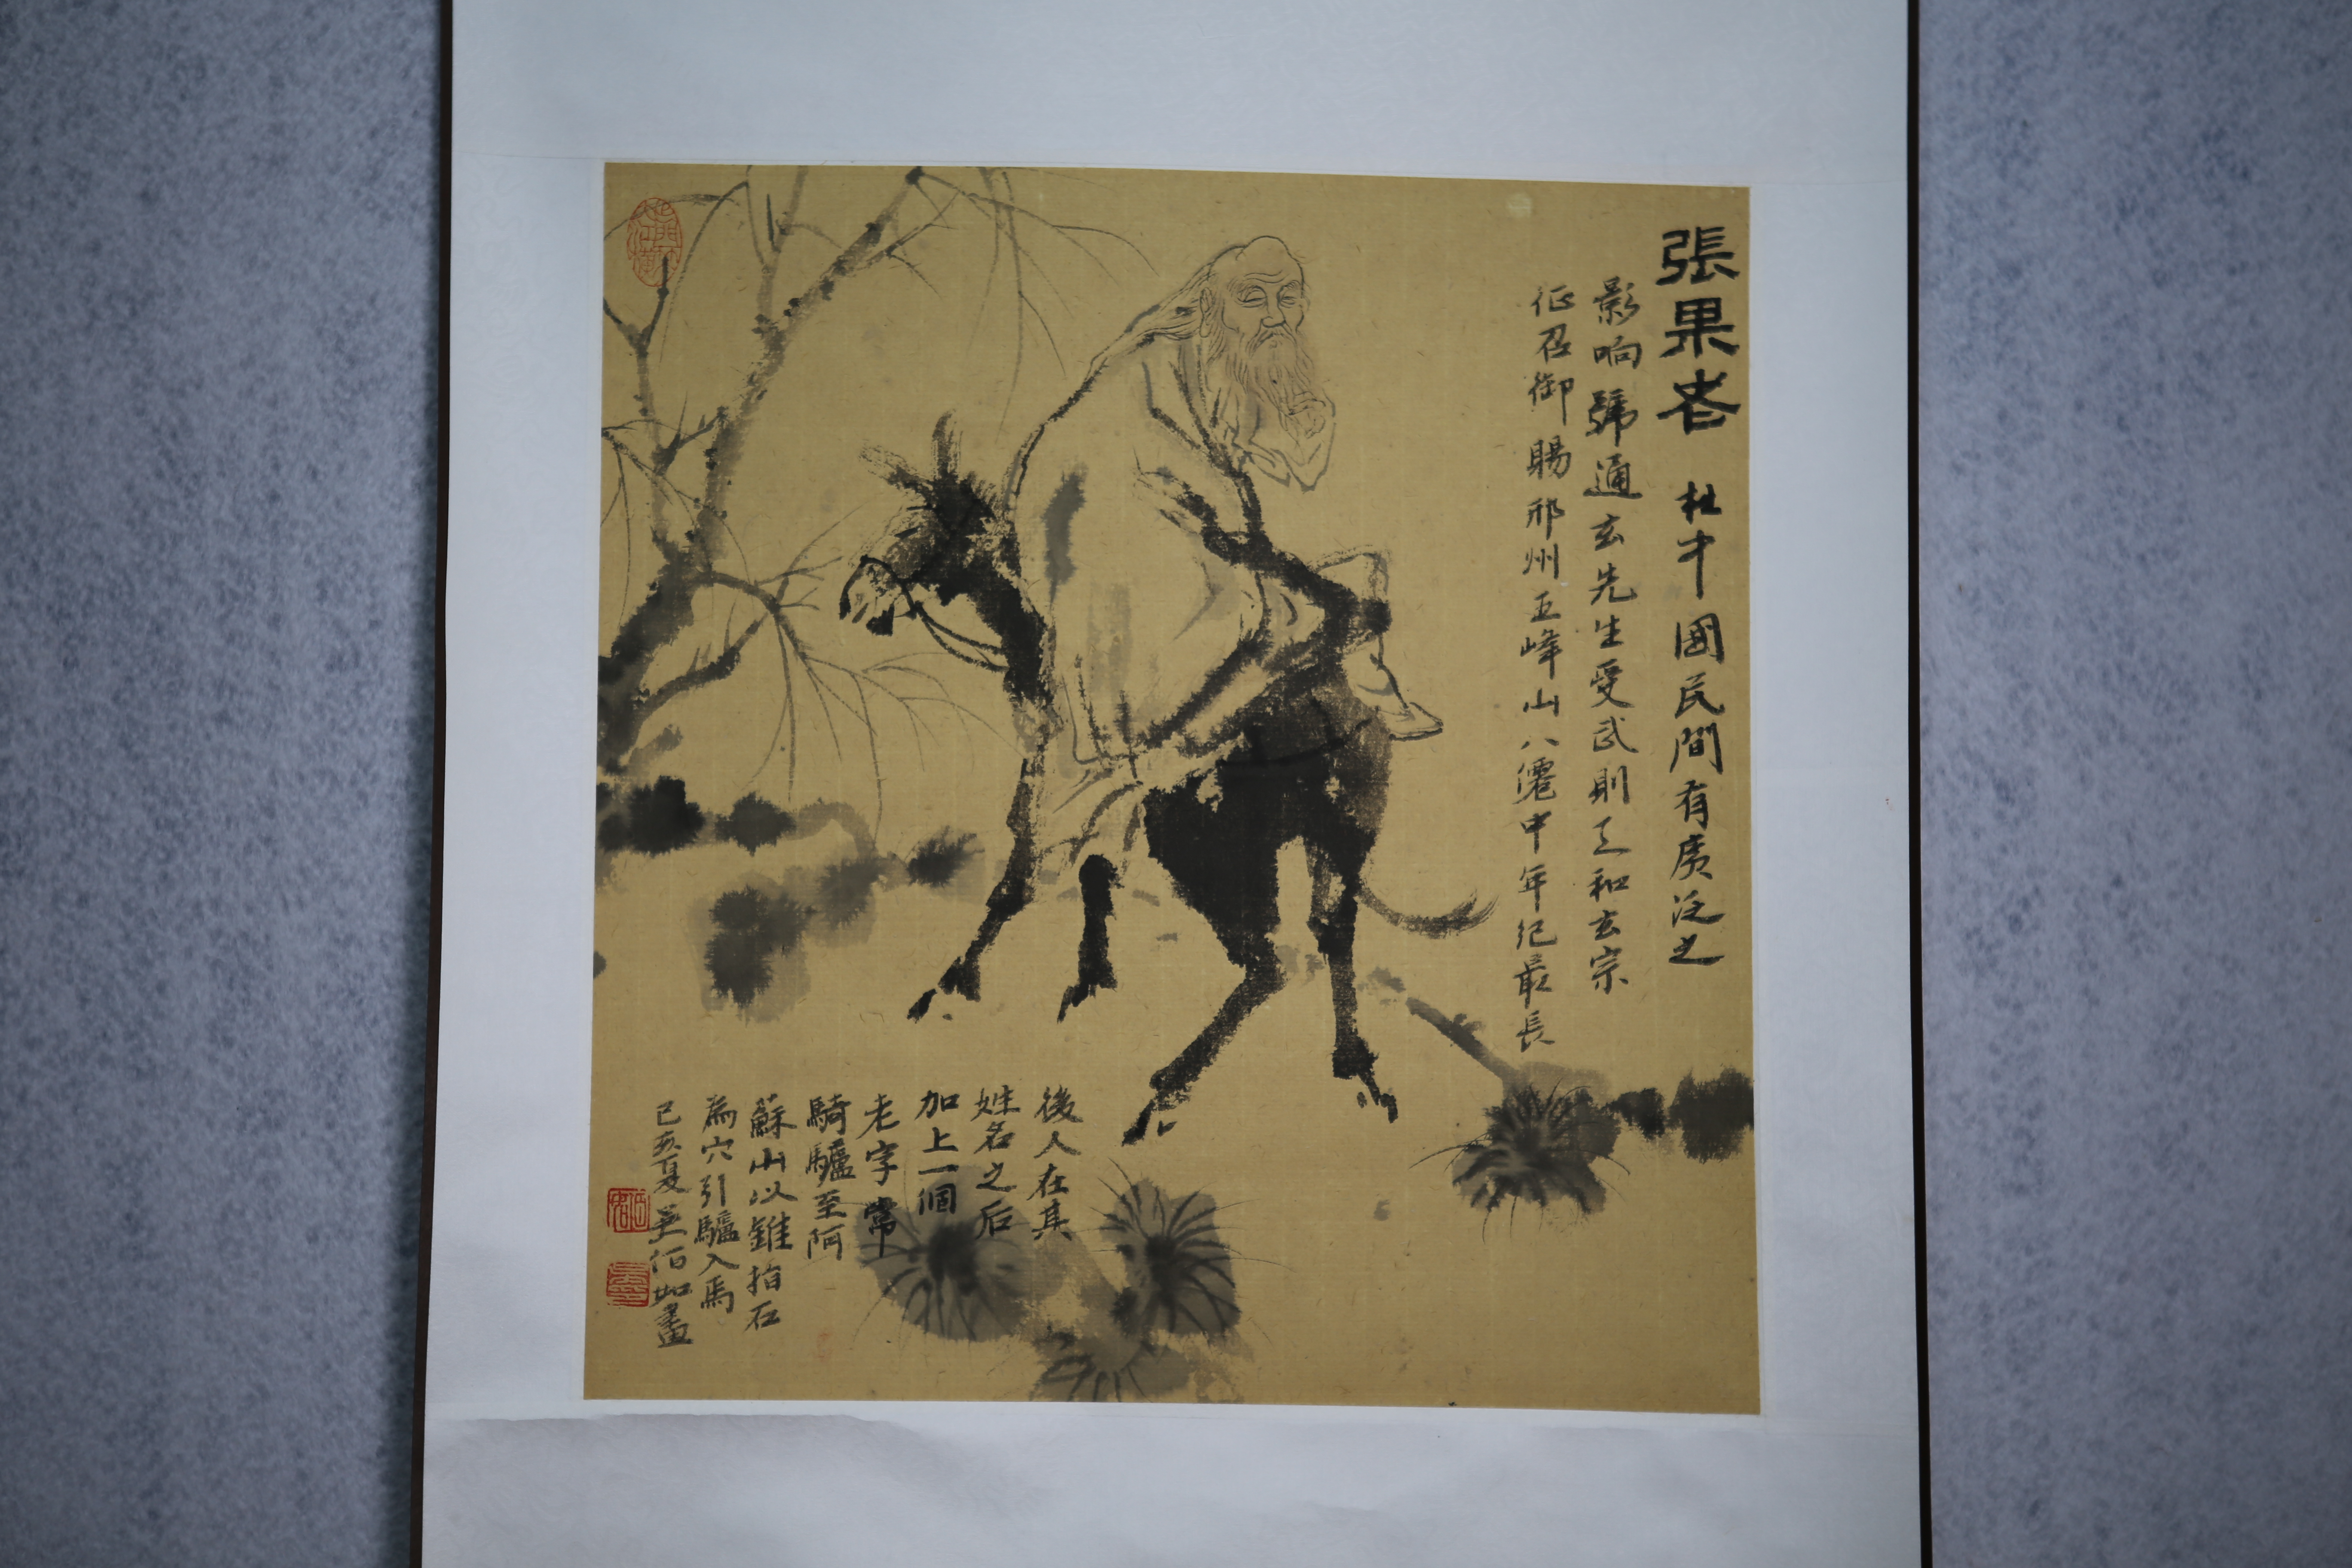 張果老 杜中國民間有廣泛之
影响號通玄先生受武則天和玄宗
征召御賜邢州五峰山八僊中年纪最長
後人在其
姓名之后
加上一個
老字常
騎驢至阿
蘇山以錐指石
為穴引驢入焉
己亥夏 吴佰如畫